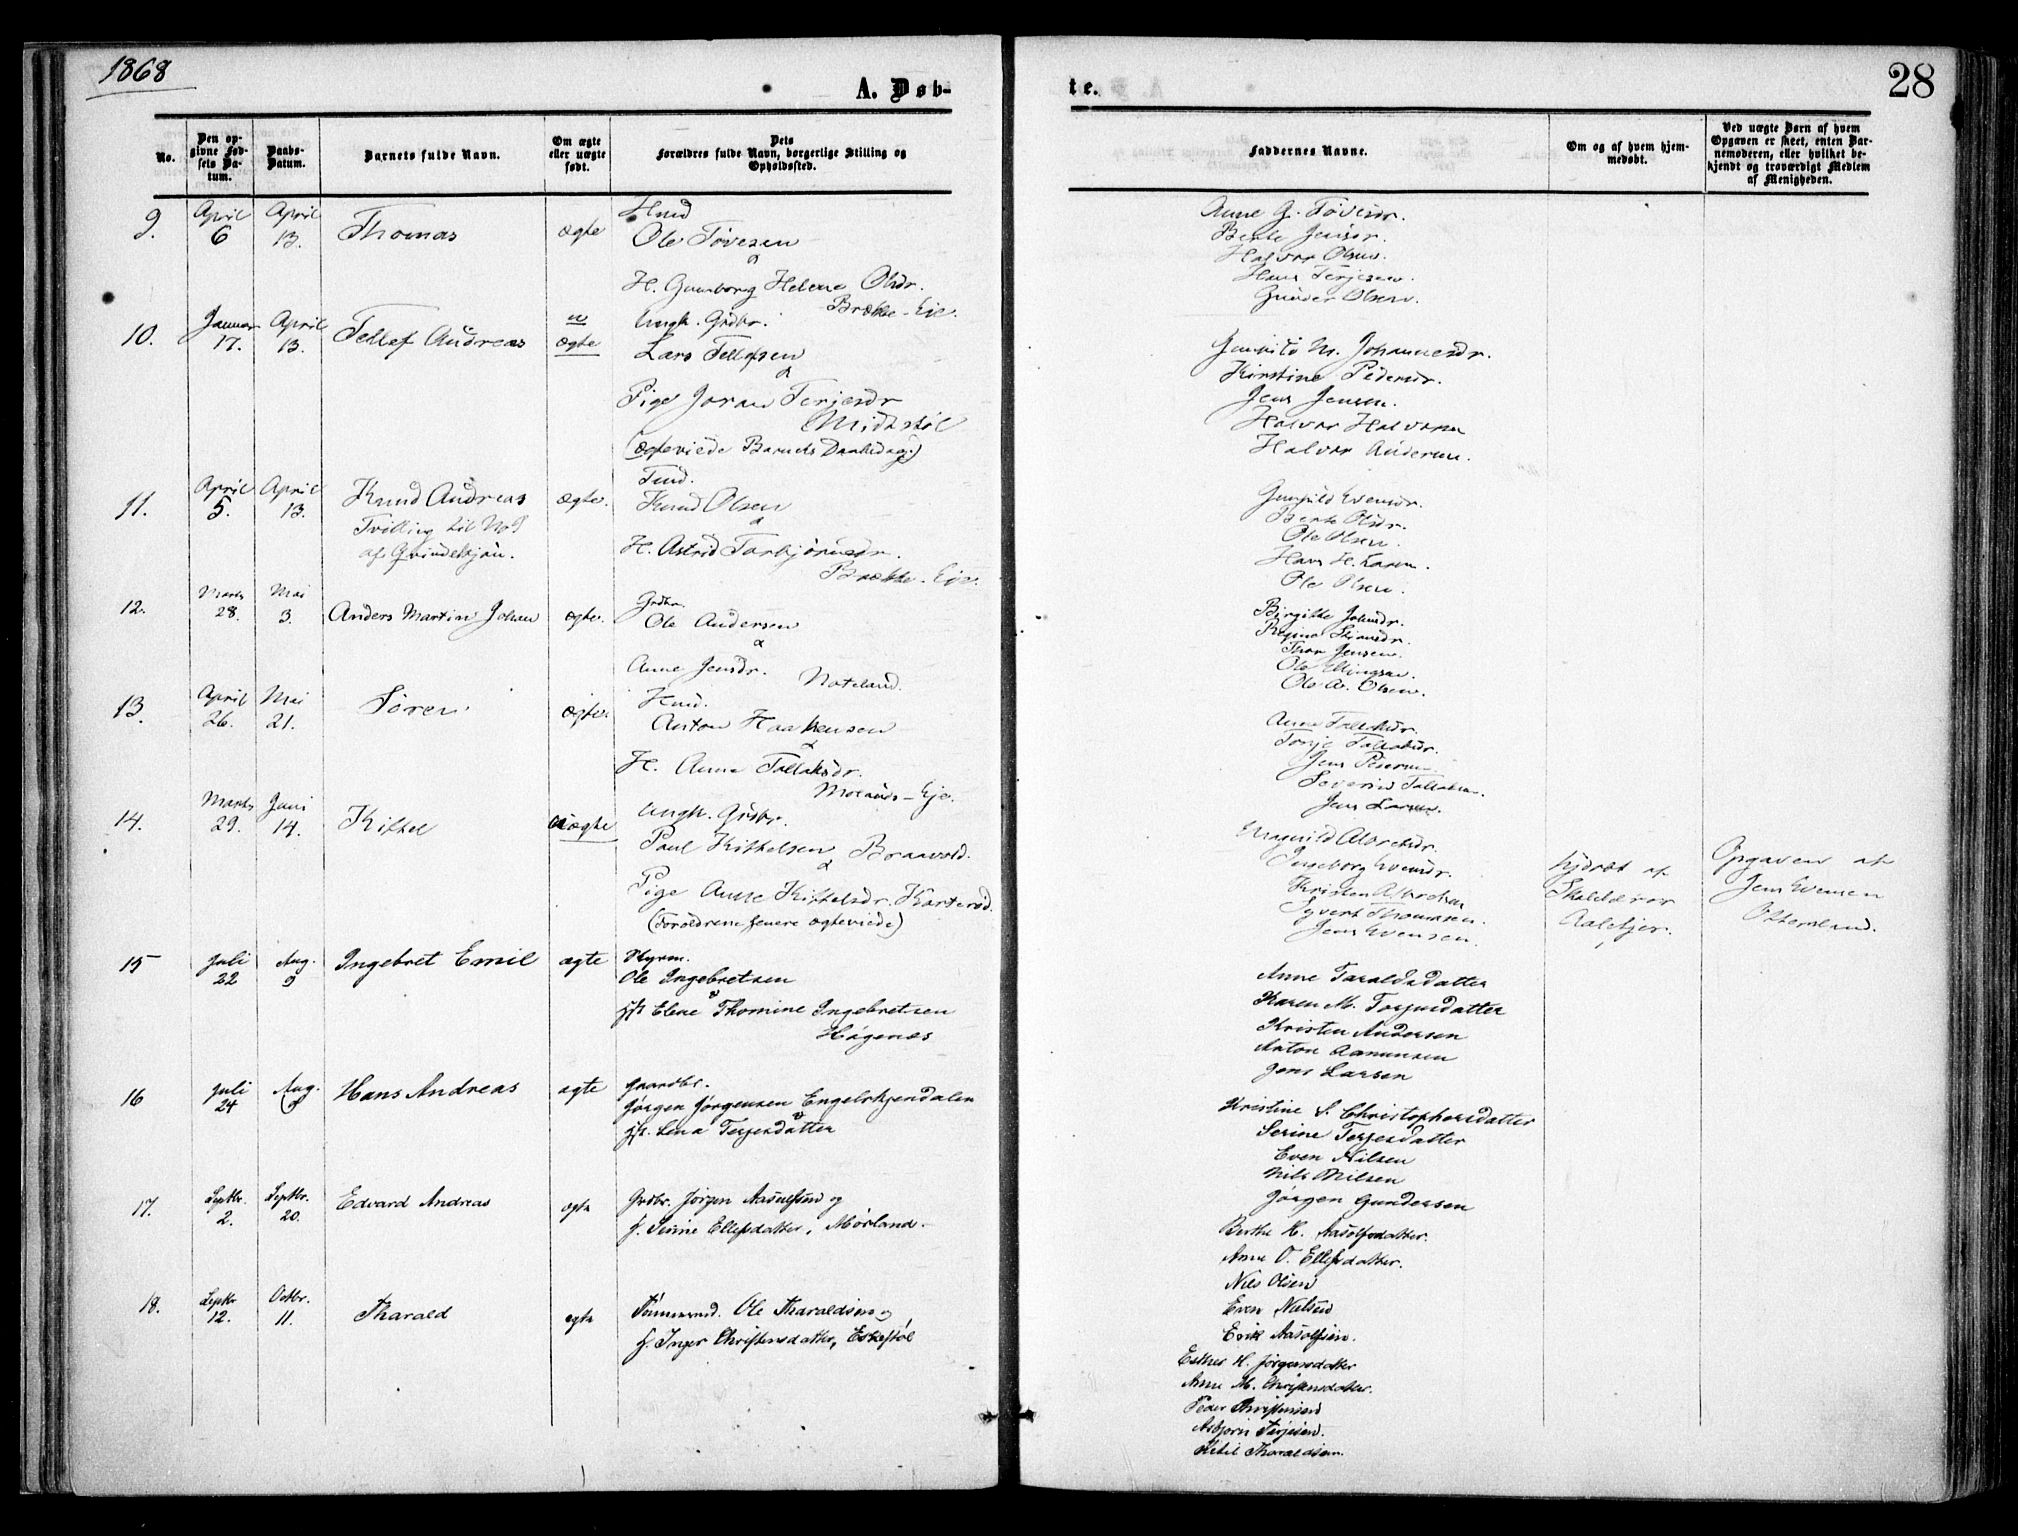 1868
A. Døb-
te.
28
No.
Den op-
givne Fød-
sels Da-
tum.
Daabs-
Datum.
Barnets fulde Navn.
Om ægte
eller uægte
født.
Dets
Forældres fulde Navn, borgerlige Stilling og
Opholdssted.
Faddernes Navne.
Om og af hvem hjem-
medøbt.
Ved uægte Børn af hvem
Opgaven er skeet, enten Bar-
nemoderen, eller hvilket be-
kjendt og troværdigt Medlem
af Menigheden.
9. April 6 April 13. Thomas ægte
Ole Tovesen
&
H. Gunborg Helene Olsdr.
Brække-Eje.
Berte Jensdr.
Halvor Olsen.
Hans Terjesen.
Gunder Olsen.
10. Januar 17. April 13. Tellef Andreas u ægte Ungk. Grdbr.
Lars Tellefsen
&
Pige Joran Terjesdr
Midtstøl
(Ægteviede Barnets Daabsdag.)
Gunhild M. Johannesdr.
Kirstine Pedersdr.
Jens Jensen.
Halvor Halvorsen
Halvor Andersen.
11. April 5. April 13. Knud Andreas ægte.
Tvilling til No 8
af Qvindekjøn.
Knud Olsen
&
H. Astrid Torbjørnsdr.
Brække-Eje.
Gunhild Evensdr.
Berte Olsdr.
Ole Olsen.
Hans H. Larsen.
Ole Olsen.
12. Marts 28. Mai 3. Anders Martin Johan ægte. Grdbr.
Ole Andersen
&
Anne Jensdr.
Noteland.
Birgitte Johnsdr.
Thor Jensen.
Ole Ellingsen.
Ole A. Olsen.
13. April 26. Mai 21. Søren ægte.
Anton Haakensen
&
H. Anne Tallaksdr.
Moland-Eje.
Anne Tallaksdr.
Tonje Tallaksdr.
Jens Pedersen
Severin Tallaksen.
Jens Larsen.
14. Marts 29. Juni 14. Kittel uægte Ungk. Grdbr.
Paul Kittelsen Braavold.
&
Pige Anne Kittelsdr. Karterød.
(Forældrene senere ægteviede)
Ingeborg Evensdr.
Syvert Thomassen.
Jens Evensen.
hjdøbt af
Skolelærer
Opgaven af
Jens Evensen
Otterland.
15 Juli 22 Aug. 9 Ingebret Emil ægte Styrm.
Ole Ingebretsen
&
Hst Elene Thomine Ingebretsen
Høgenes
Anne Taraldsdatter
Karen M. Torjusdatter
Kristen Andersen
Anton Aanunsen
Jens Larsen
16 Juli 24 Aug. 9 Hans Andreas ægte Gaardbr.
Jørgen Jørgensen Engelskjøndalen
&
Hst. Lena Terjesdatter
Kristine S. Christophersdatter
Serine Terjesdatter
Even Nilsen
Nils Nilsen
Jørgen Gundersen
17. Septbr. 2. Septbr. 20. Edvard Andreas ægte Grdbr. Jørgen Aasulfsen og
H. Serine Ellefsdatter, Mørland.
Berthe H. Aasulfsdatter.
Anne O. Ellefsdatter.
Nils Olsen
Even Nielsen
Erik Aasulfsen.
18. Septbr 12. Octbr. 11. Tharald ægte Tømmermd. Ole Tharaldsen og
H. Inger Christensdatter, Eskestøl
Esther H. Jørgensdatter
Anne M. Christensdatter.
Peder Christensen
Asbjørn Terjesen.
Ketil Tharaldsen.